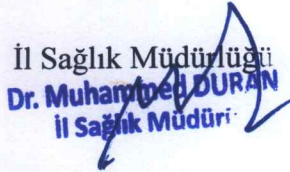 İl Sağlık Müdürlüğü
Dr. Muhammed DURAN
İl Sağlık Müdürü